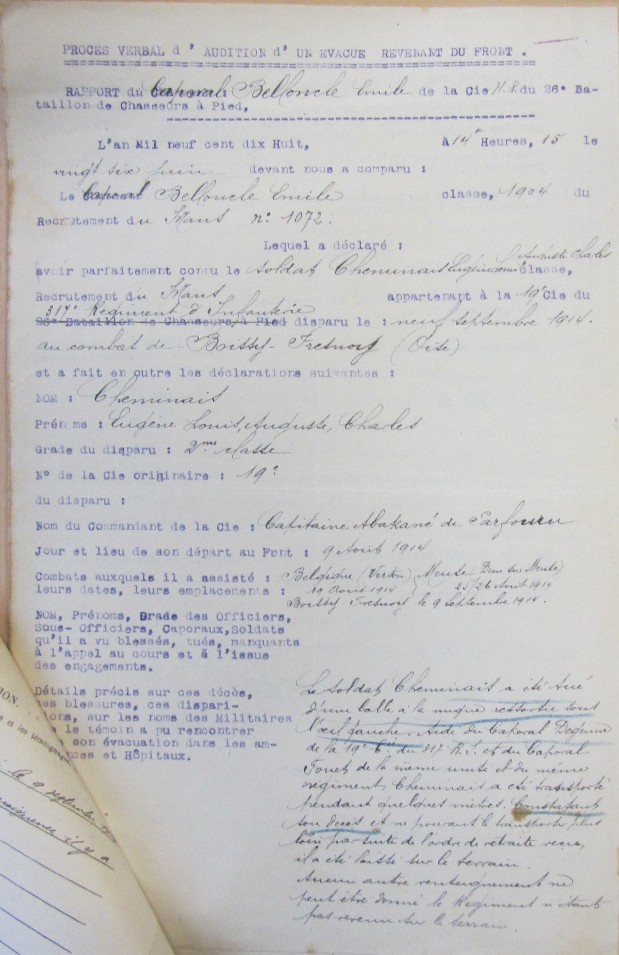 PROCES VERBAL d' AUDITION d' UN EVACUE REVENANT DU FRONT .
RAPPORT du Caporal : Belloncle Emile de la Cie H.R. du 26e Ba-
taillon de Chasseurs à Pied,
L'an Mil neuf cent dix Huit, à 14 Heures, 15 le
vingt six juin devant nous a comparu :
Le Caporal Belloncle Emile classe, 1904 du
Recrutement du Mans n° 1072.
Lequel a déclaré :
Auguste Charles
avoir parfaitement connu le soldat Cheminais Eugène Louis Classe,
Recrutement du Mans appartenant à la 19e Cie du
317e Régiment d'Infanterie
26e Bataillon de Chasseurs à Pied disparu le : neuf septembre 1914.
au combat de Boissy-Fresnoy (Oise)
et a fait en outre les déclarations suivantes :
NOM : Cheminais
Prénoms : Eugène Louis, Auguste, Charles
Grade du disparu : 2me classe
N° de la Cie originaire : 19e
du disparu :
Nom du Commandant de la Cie : Capitaine de Parfouru
Jour et lieu de son départ au Font : 9 Août 1914
Combats auxquels il a assisté : Belgique (Virton) Meuse Dun sur Meuse
leurs dates, leurs emplacements : 19 Août 1914 25/26 Août 1914
Boissy-Fresnoy le 9 Septembre 1914.
NOM, Prénoms, Grade des Officiers,
Sous-Officiers, Caporaux, Soldats
qu'il a vu blessés, tués, manquants
à l'appel au cours et à l'issue
des engagements.
Détails précis sur ces décès,
es blessures, ces dispari-
ions, sur les noms des Militaires
e le témoin a pu rencontrer
son évacuation dans les am-
ces et Hôpitaux.
Le Soldat Cheminais a été tué
d'une balle à la nuque ressortie sous
l'œil gauche. Aidé du Caporal
de la 19e Cie du 317 R.I. et du Caporal
Fouet de la même unité et du même
régiment, Cheminais a été transporté
pendant quelques mètres. Constatant
son décès et ne pouvant le transporter plus
loin par suite de l'ordre de retraite reçu,
il a été laissé sur le terrain.
Aucun autre renseignement ne
peut être donné le Régiment n'étant
pas revenu sur le terrain.
ION.
s et les témoignages
le 9 septembre
il y a